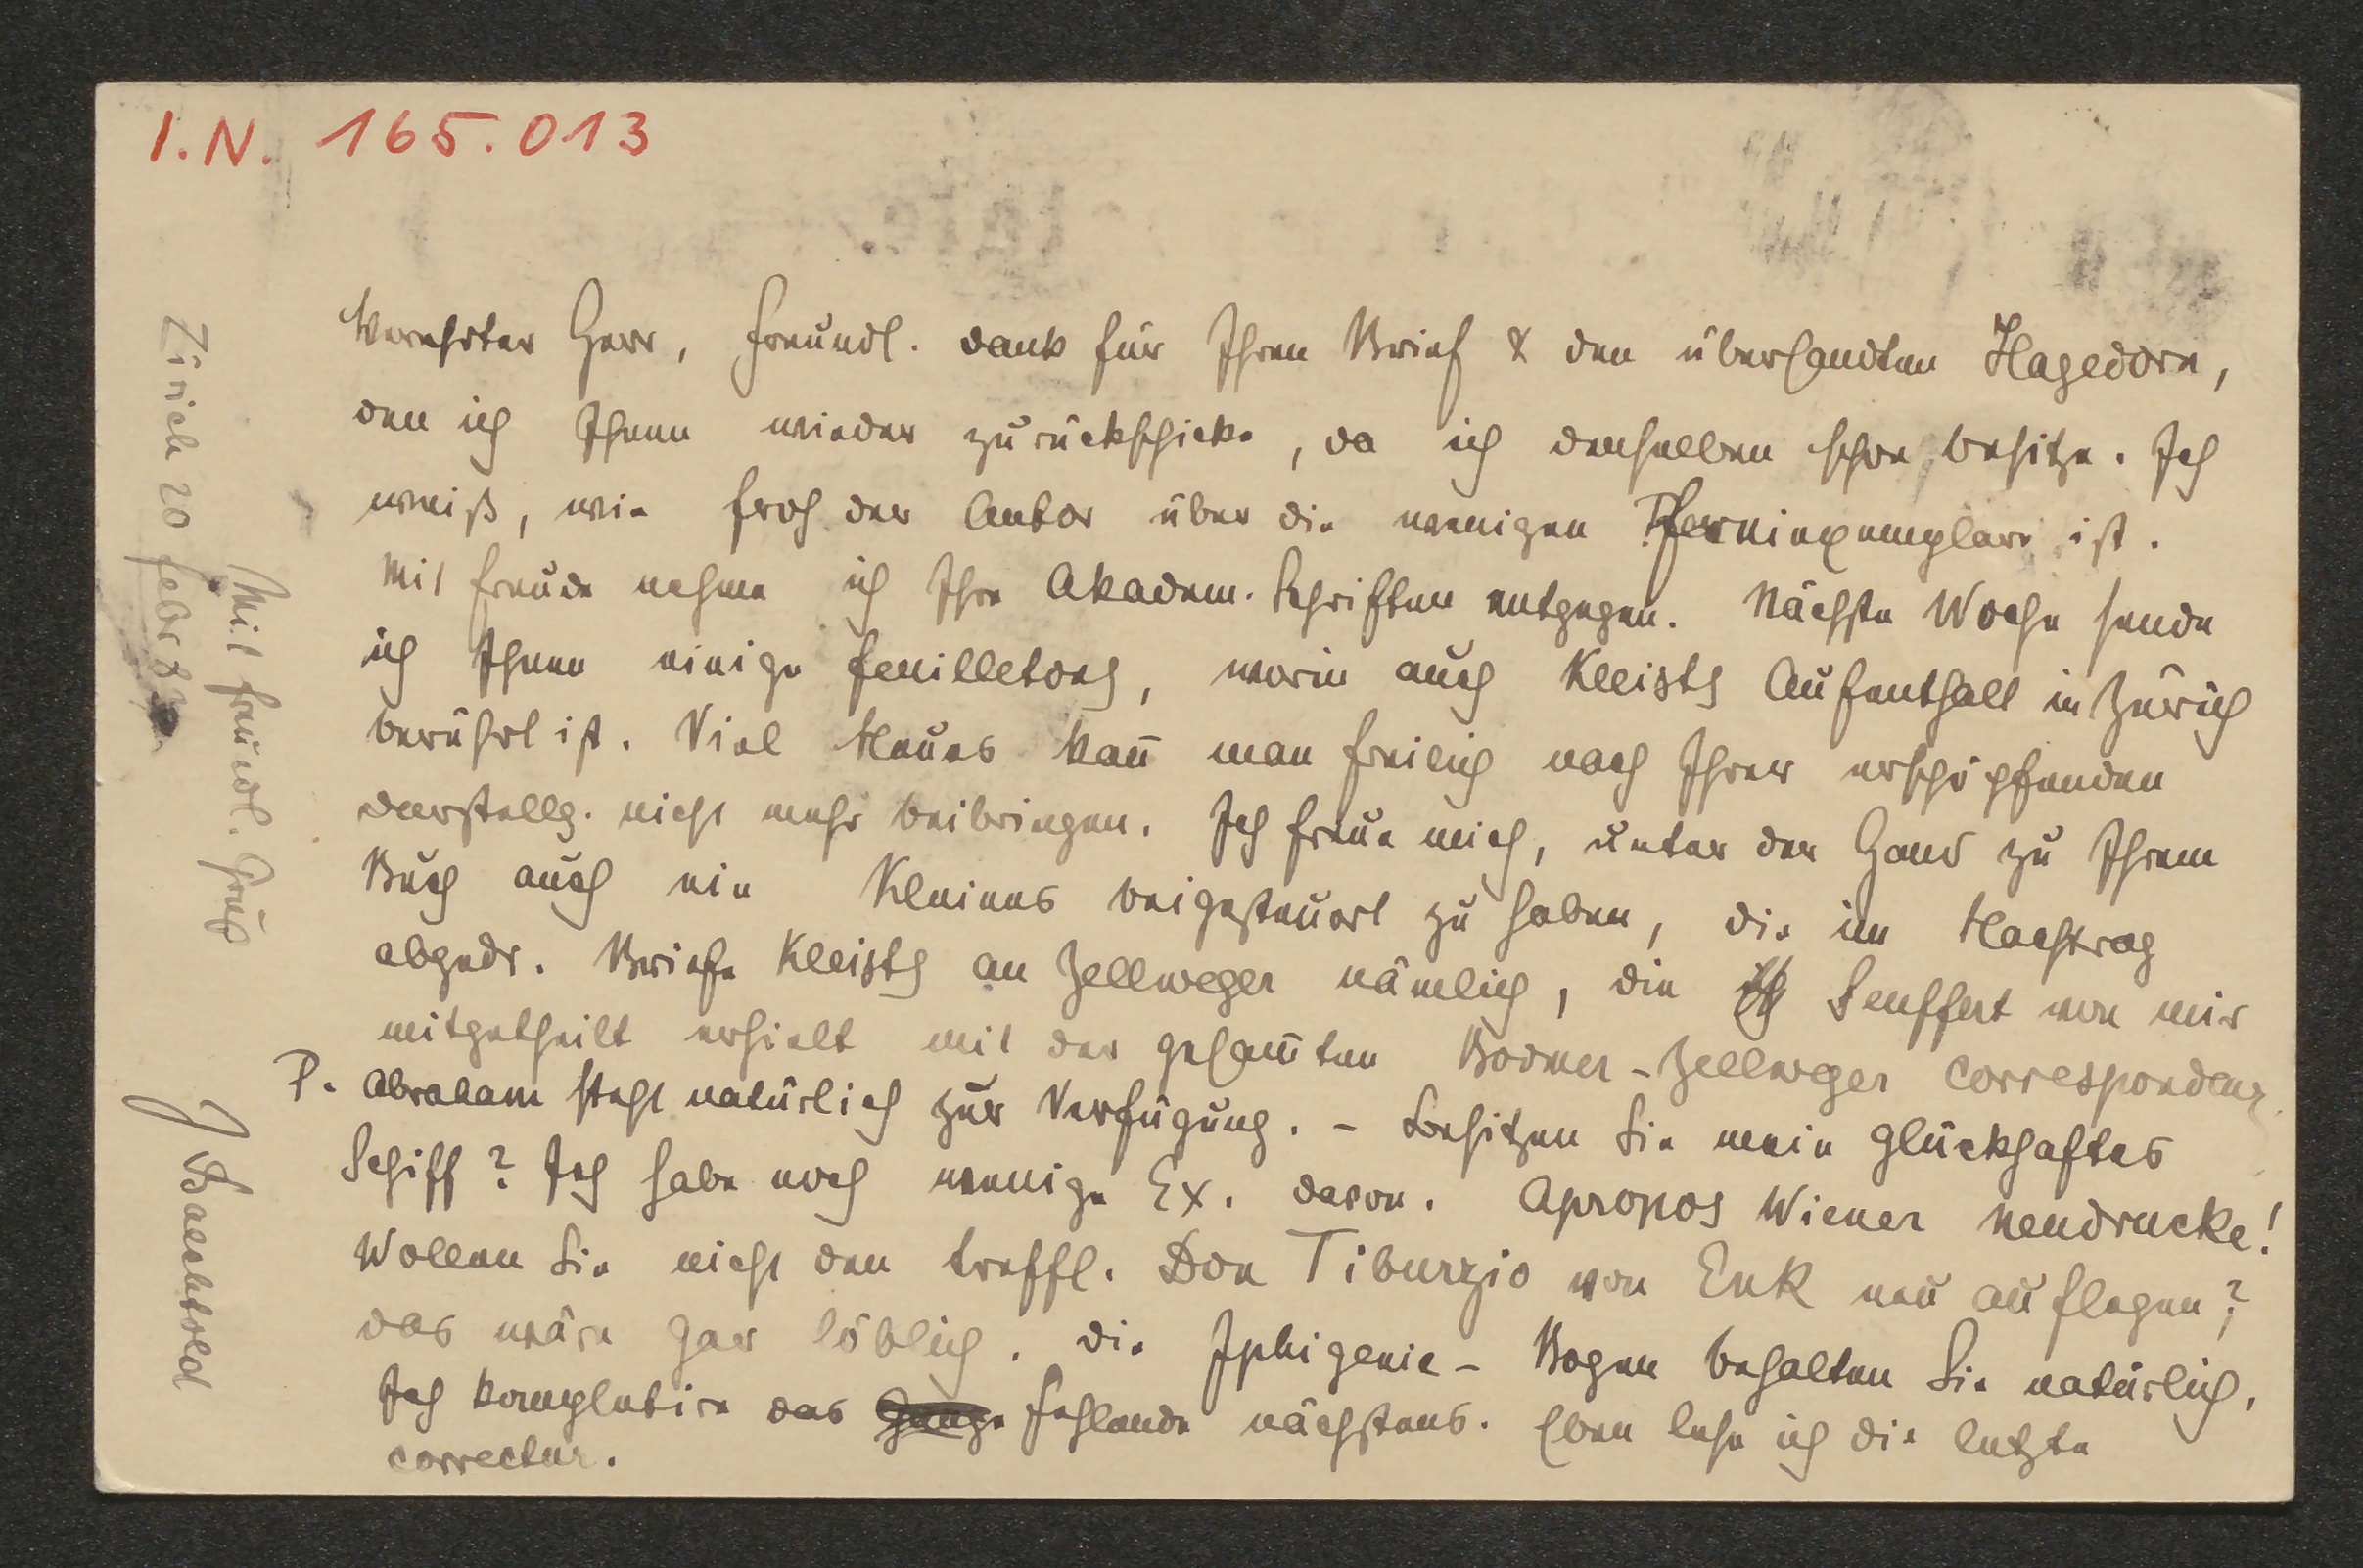 I.N. 165.013
Verehrter Herr, freundl. Dank für Ihren Brief & den übersandten Hagedorn,
den ich Ihnen wieder zurückschicke, da ich denselben schon besitze. Ich
weiß, wie froh der Autor über die wenigen Freiexemplare ist.
Mit Freude nehme ich Ihre Akadem. Schriften entgegen. Nächste Woche sende
ich Ihnen einige Feuilletons, worin auch Kleists Aufenthalt in Zürich
berührt ist. Viel Neues kan̄ man freilich nach Ihrer erschöpfenden
Darstellg. nicht mehr beibringen. Ich freue mich, unter der Hand zu Ihrem
Buch auch ein Kleines beigesteuert zu haben, die im Nachtrag
abgedr. Briefe Kleists an Zellweger nämlich, die ich Seuffert von mir
mitgetheilt erhielt mit der gesam̄ten Bodmer-Zellweger Correspondenz.
P. Abraham steht natürlich zur Verfügung. – Besitzen Sie mein Glückhaftes
Schiff? Ich habe noch wenige Ex. davon. Apropos Wiener Neudrucke!
Wollen Sie nicht den treffl. Don Tiburzio von Enk neu auflegen?
Das wäre gar löblich. Die Iphigenie-Bogen behalten Sie natürlich.
Ich kompletire das Ganze Fehlende nächstens. Eben lese ich die letzte
Correctur.
Mit freundl. Gruß
Zürich 20 Febr 83
J Baechtold